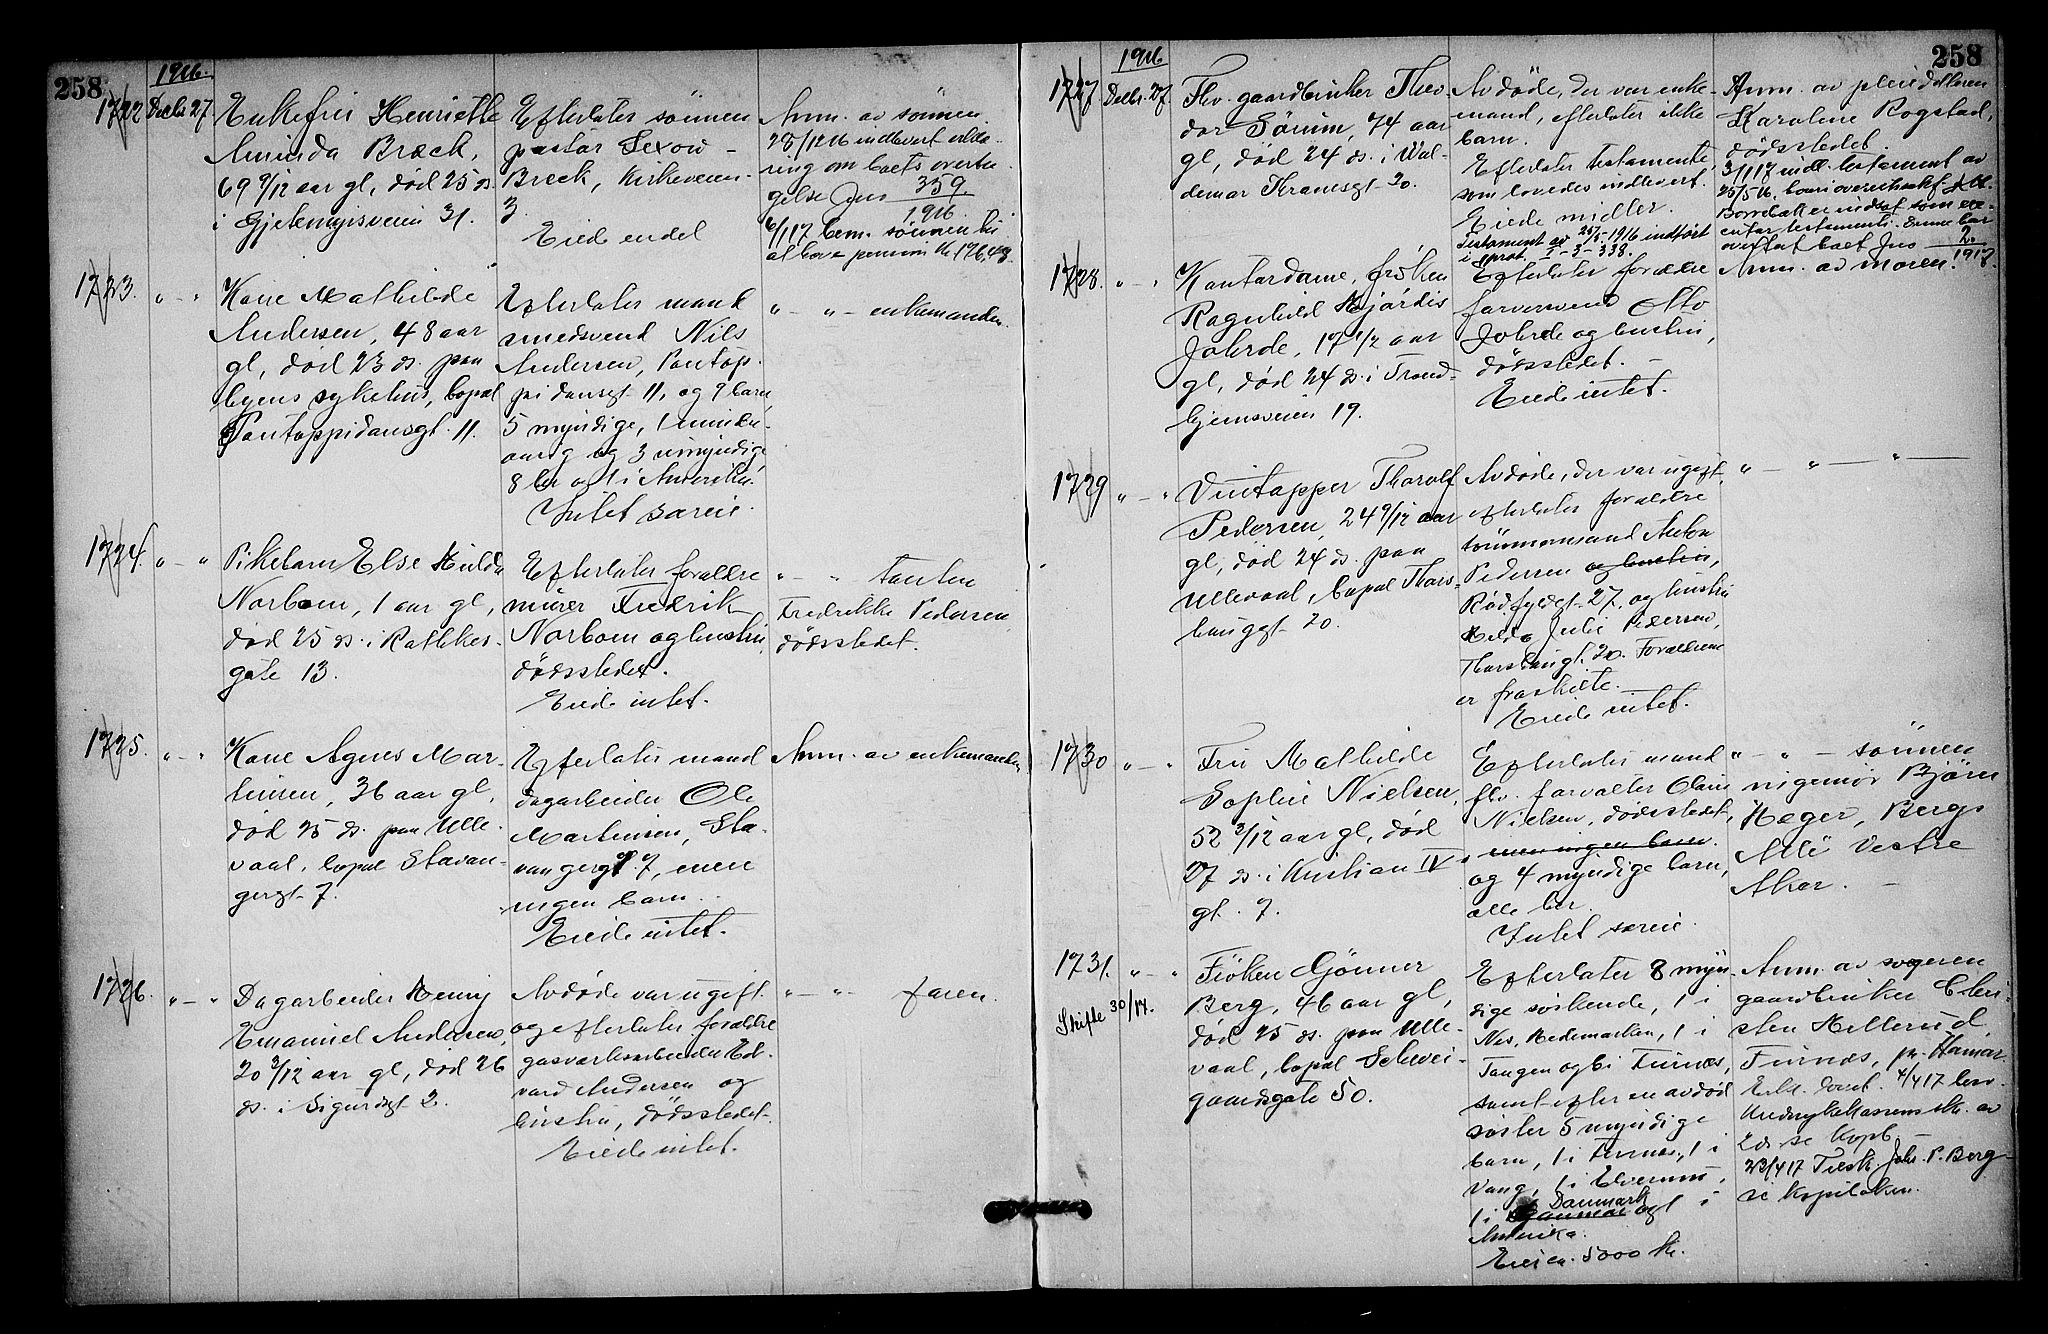 258
1916.
1722
Decbr 27.
Enkefru Henriette
Aminda Bræck,
69 9/12 aar gl, død 25 ds.
i Gjetemyrsveien 31.
Efterlater sønnen
pastor Sexow-
Bræck, Kirkeveien
3.
Eiede endel
Anm. av sønnen.
28/12 16 indlevert erklæ-
ring om boets overta-
gelse Jno 359
1916.
6/1 17 bem. sønnen
at hæve pension kr 176,48.
1723.
" - "
Kone Mathilde
Andersen, 48 aar
gl, død 23 ds. paa
byens sykehus, bopæl
Pontoppidansgt. 11.
Efterlater mand
smedsvend Nils
Andersen, Pontop-
pidansgt 11, og 9 barn,
5 myndige, 1 minder-
aarig og 3 umyndige
8 her og 1 i Amerika.
Intet særeie.
" - " - enkemanden.
1724.
" - "
Pikebarn Else Hilda
Norbom, 1 aar gl,
død 25 ds. i Rathkes-
gate 13.
Efterlater forældre
murer Fredrik
Norbom og hustru,
dødsstedet.
Eiede intet.
" - " tanten
Fredrikke Pedersen,
dødsstedet.
1725.
" - "
Kone Agnes Mar-
tinsen, 36 aar gl,
død 25 ds. paa Ulle-
vaal, bopæl Stavan-
gergt 7.
Efterlater mand
dagarbeider Ole
Martinsen, Sta-
vangergt 7, men
ingen barn.
Eiede intet.
Anm. av enkemanden
1726.
" - "
Dagarbeider Henry
Emanuel Andersen,
20 2/12 aar gl, død 26
ds. i Sigurdsgt 2.
Avdøde var ugift
og efterlater forældre
gasverksarbeider Ed-
vard Andersen og
hustru, dødsstedet.
Eiede intet.
" - " - faren.
258
1916
1727
Decbr. 27.
Fhv. gaardbruker Theo-
dor Sörum, 74 aar
gl, død 24 ds. i Wal-
demar Thranesgt 20.
Avdøde, der var enke-
mand, efterlater ikke
barn.
Efterlater testamente,
som lovedes indlevert.
Eiede midler.
Testament av 25/5 1916 indført
i prot. I - 3 - 338.
Anm. av pleiedatteren
Karoline Rogstad,
dødsstedet.
3/1 17 indl. testament av
25/5 16.
Borrebæk er indsat som exe-
cutor testamenti. Denne har
overtat boet Jno 2
1917.
1728.
" - "
Kontordame, frøken
Ragnhild Hjørdis
Johrde, 17 1/2 aar
gl, død 24 ds. i Trond-
hjemsveien 19.
Efterlater forældre
farversvend Otto
Johrde og hustru,
dødsstedet.
Eiede intet.
Anm. av moren.
1729
" - "
Vintapper Thorolf
Pedersen, 24 9/12 aar
gl, død 24 ds. paa
Ullevaal, bopæl Thors-
haugt. 20.
Avdøde, der var ugift,
efterlater forældre
tømmermand Anton
Pedersen og hustru,
Rødfyldgt 27, og hustru
Hilda Julie Pedersen,
Thorshaugt. 20. Forældrene
er fraskilte.
Eiede intet.
" - " - " -
1730
" - "
Fru Mathilde
Sophie Nielsen,
52 2/12 aar gl, død
27 ds. i Kristian IV
gt. 7.
Efterlater mand
fhv. forvalter Olaus
Nielsen, dødsstedet,
men ingen barn.
og 4 myndige barn,
alle her.
Intet særeie.
" - " - sønnen
ingeniør Bjørn
Heger, Bergs
Allé Vestre
Aker.
1731.
" - "
Skifte 30/17.
Frøken Gjönner
Berg, 46 aar gl,
død 25 ds. paa Ulle-
vaal, bopæl Schwei-
gaardsgate 50.
Efterlater 8 myn-
dige søskende, 1 i
Nes, Hedemarken, 1 i
Tangen og 6 i Furnæs,
samt efter en avdød
søster 5 myndige
barn, 1 i Furnæs, 1 i
Vang, 1 i Elverum,
Danmark
1 i og 1 i
Amerika.
Eier ca. 5000 kr.
Anm. av svogeren
gaardbruker Chri-
sten Hellerud,
Furnæs, pr. Hamar.
4/4 17 bev.
av
2 ds se kopb
23/4 17 Tilsk. Joh. P. Berg
se kopiboken.